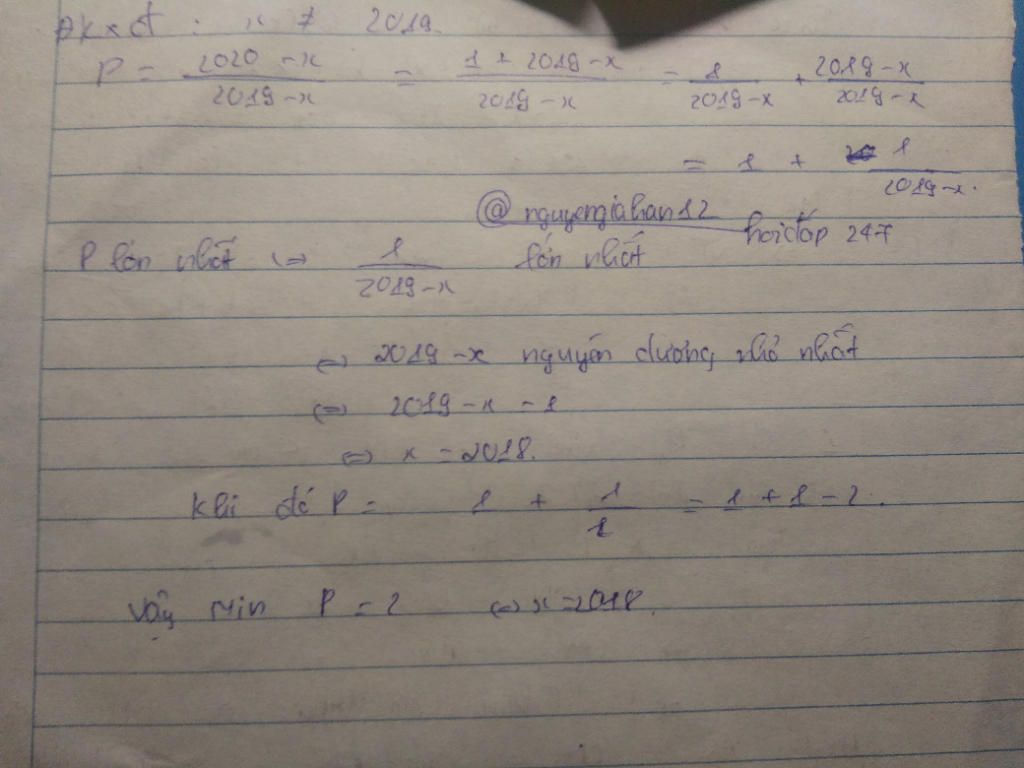 ĐKXĐ : x ≠ 2019.
P = (2020 - x)/(2019 - x) = (1 + 2019 - x)/(2019 - x) = 1/(2019 - x) + (2019 - x)/(2019 - x)
= 1 + 1/(2019 - x).
@nguyengiahan12 hoidap 247
P lớn nhất (=) 1/(2019 - x) lớn nhất
(=) 2019 - x nguyên dương, nhỏ nhất
(=) 2019 - x = 1
(=) x = 2018.
Khi đó P = 1 + 1/1 = 1 + 1 = 2.
Vậy Min P = 2 (=) x = 2018.